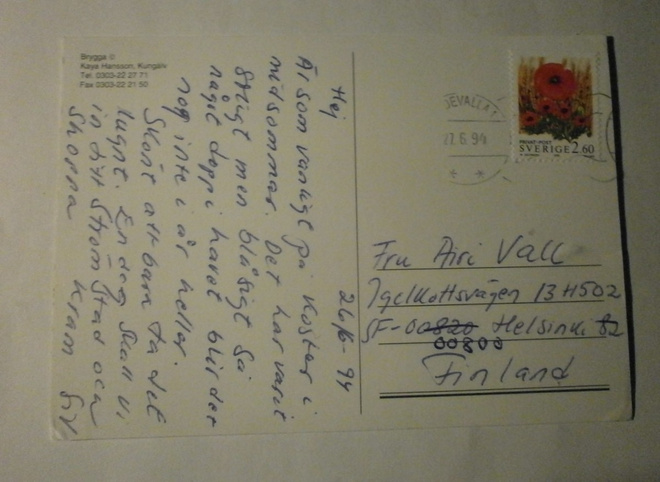 Brygga ©
Kaya Hansson, Kungälv
Tel. 0303-22 27 71
Fax 0303-22 21 50
26/6-94
Hej
Är som vanligt på Koster i
midsommar. Det har varit
soligt men blåsigt så
något dopp i havet blir det
nog inte i år heller.
Skönt att bara ta det
lugnt. En dag skall vi
in till Strömstad och
shoppa Kram
DEVALLA 1
27.6.94
PRIVAT-POST
SVERIGE 2.60
Fru Airi Vall
Igelkottsvägen 13 H502
SF-00820 Helsinki 82
00800
Finland